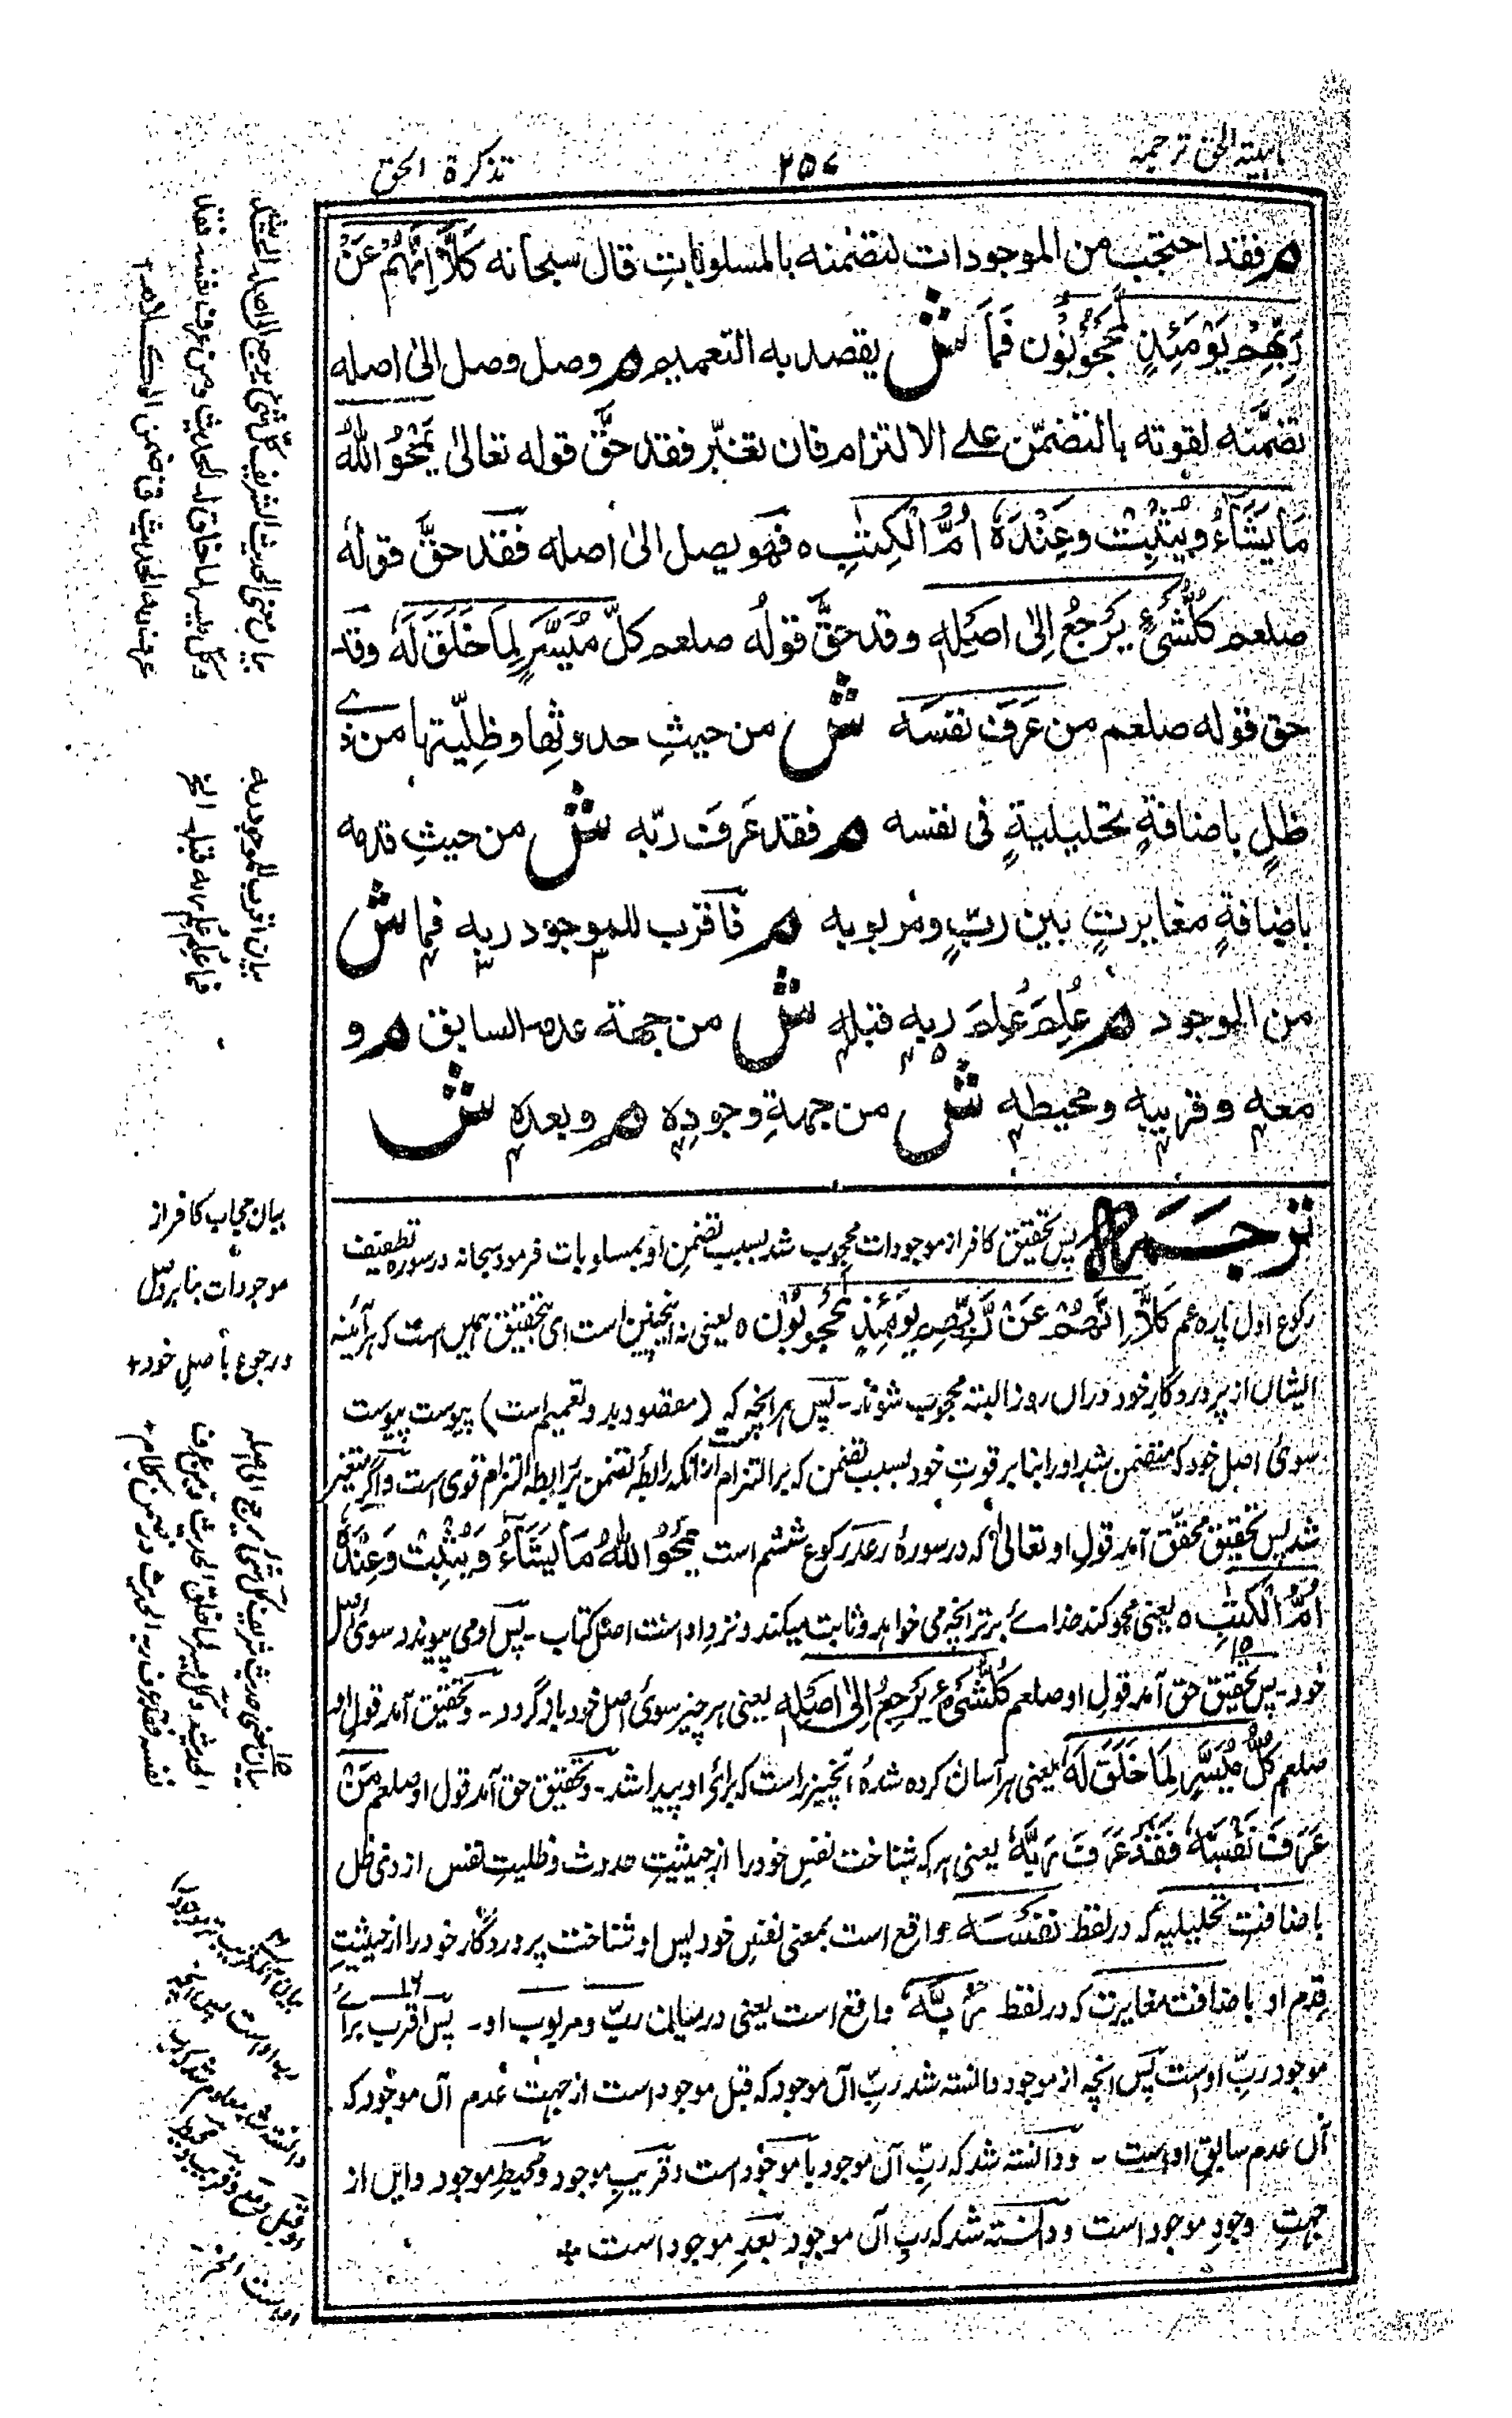 تذکرة الحق
۲۵۷
ترجمہ
م فقد احتجب من الموجودات لتضمنه بالمسلوبات قال سبحانه کَلَّا اِنَّهُمْ عَنْ
رَبِّهِمْ يَوْمَئِذٍ لَمَحْجُوْبُوْن فَمَا ش يقصد به التعميم م وصل وصل الیٰ اصله
تضمَّنه لقوته بالتضمّن علے الالتزام فان تغیّر فقد حقَّ قوله تعالیٰ يَمْحُو اللهُ
مَا يَشَاءُ وَيُثْبِتُ وَعِنْدَهٗ اُمُّ الْكِتٰبِ ه فهو يصل الیٰ اصله فقد حقَّ قولهٗ
صلعم كُلُّ شَيْءٍ يَرْجِعُ اِلیٰ اَصْلِهٖ وقد حقَّ قولهُ صلعم كلّ مُيَسَّرٍ لِمَا خَلَقَ لَهٗ وقد
حق قوله صلعم من عَرَفَ نفسَه ش من حيثِ حدوثِها وظِلِّيّتها من ذے
ظلٍ باضافةٍ تحليليةٍ فی نفسه م فقد عَرَفَ ربّه ش من حيثِ قدمه
باضافةٍ مغايرتٍ بين ربٍّ ومربوبه م فاقرب للموجود ربه فما ش
من الموجود م عُلِمَ عُلِمَ ربه قبله ش من جهة عدمه السابق م و
معه وقريبه ومحيطه ش من جهةِ وجودِه م وبعدِه ش
ترجمه پس تحقیق کافر از موجودات محجوب شد بسبب تضمنِ او بمسلوبات فرمود سبحانه در سوره تطفیف
رکوع اول پاره عم کَلَّا اِنَّهُمْ عَنْ رَّبِّهِمْ يَوْمَئِذٍ لَمَحْجُوْبُوْنَ ه یعنی نه اینچنین است ای تحقیق همین است که هر آئینه
ایشان از پروردگارِ خود دران روز البته محجوب شوند ـ پس هر انچه که (مقصود بدو تعمیم است) پیوست پیوست
سوئ اصل خود که متضمن شد او را بنا بر قوتِ خود بسبب تضمن که بر التزام است از انکه رابطهٔ تضمن بر رابطه التزام قوی است و اگر متغیر
شد پس تحقیق محقق آمد قولِ او تعالیٰ که در سورۂ رعد رکوع ششم است يَمْحُو اللهُ مَا يَشَاءُ وَيُثْبِتُ وَعِنْدَهٗ
اُمُّ الْكِتٰبِ ه یعنی محو کند خداے برتر انچه می خواهد و ثابت میکند و نزد او است اصل کتاب ـ پس او می پیوندد سوئ اصل
خود ـ پس تحقیق حق آمد قولِ او صلعم كُلُّ شَيْءٍ يَرْجِعُ اِلیٰ اَصْلِهٖ یعنی هر چیز سوئ اصل خود باز گردد ـ و تحقیق آمد قولِ او
صلعم كُلٌّ مُيَسَّرٍ لِمَا خَلَقَ لَهٗ یعنی هر آسان کرده شدۂ آنچیز است که برائ او پیدا شد ـ و تحقیق حق آمد قول او صلعم مَنْ
عَرَفَ نَفْسَهٗ فَقَدْ عَرَفَ رَبَّهٗ یعنی هر که شناخت نفسِ خود را از حیثیتِ حدوث و ظلیتِ نفس از ذی ظل
باضافتِ تحلیلیه که در لفظ نفسَه واقع است بمعنی نفسِ خود پس او شناخت پروردگار خود را از حیثیتِ
قِدمِ او باضافت مغایرت که در لفظ رَبَّهٗ واقع است یعنی درمیان ربّ و مربوب او ـ پس اقرب برائے
موجود ربِّ اوست پس انچه از موجود دانسته شد ربِّ آن موجود که قبل موجود است از جهتِ عدم آں موجود که
آں عدم سابقِ اوست ـ و دانسته شد که ربِّ آن موجود با موجود است و قریبِ موجود و محیطِ موجود و ایں از
جهتِ وجودِ موجود است و دانسته شد که ربِ آن موجود بعدِ موجود است +
بیان معنی الحدیث الشریف کلّ شئ یرجع الی اصله
عرف ربه الحدیث فی ضمن الکلام ۱۲
بیان اقرب للموجود ربه
فما علم علم ربه قبله الخ
بیان حجاب کافر از
موجودات بنا بر وصل
و رجوع باصلِ خود +
بیان معنی حدیث شریف کل شئ یرجع الی اصله
نفسه فقد عرف ربه الحدیث در ضمن کلام +